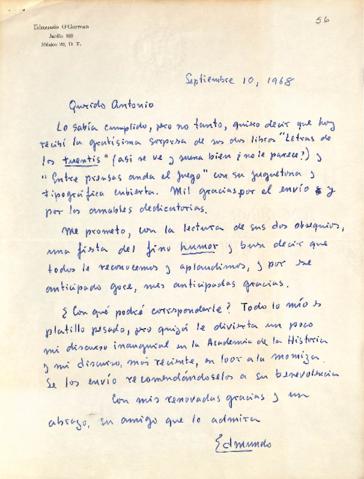 56
Edmundo O'Gorman
Jardín 88
México 20, D. F.
Septiembre 10, 1968
Querido Antonio
Lo sabía cumplido, pero no tanto, quiero decir que hoy
recibí la gratísima sorpresa de sus dos libros "Letras de
los twentis" (así se ve y suena bien ¿no le parece?) y
"Entre prensas anda el juego" con su juguetona y
tipográfica cubierta. Mil gracias por el envío y
por las amables dedicatorias.
Me prometo, con la lectura de sus dos obsequios,
una fiesta del fino humor y buen decir que
todos le reconocemos y aplaudimos, y por ese
anticipado goce, mis anticipadas gracias.
¿Con qué podré corresponderle? Todo lo mío es
platillo pesado, pero quizá le divierta un poco
mi discurso inaugural en la Academia de la Historia
y mi discurso, más reciente, en loor a la momiza.
Se los envío recomendándoselos a su benevolencia
Con mis renovadas gracias y un
abrazo, su amigo que lo admira
Edmundo